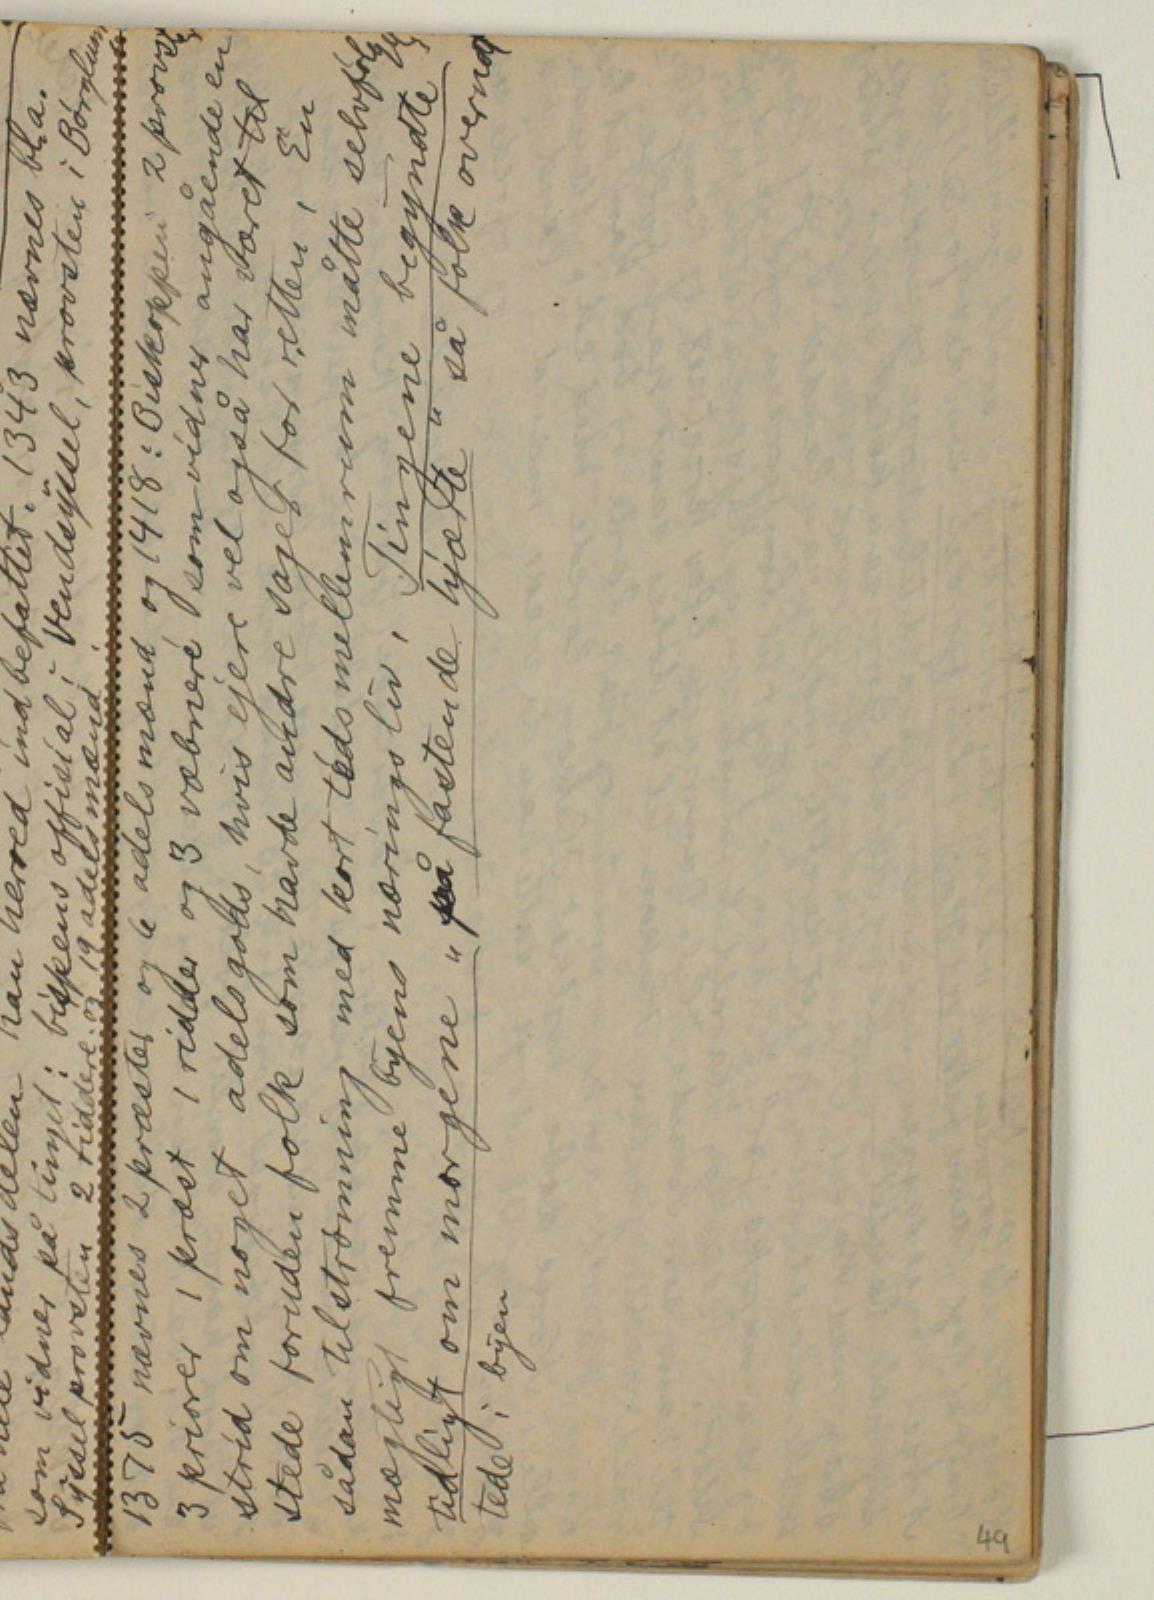 landsdelen han herred indbefattet. 1343 nævnes bl.a.
som vidner på tinget: bispens offisial i Vendsÿssel, provsten i Børglum
Sÿsselprovsten 2 riddere og 19 adelsmænd.
1375 nævnes 2 præster og 6 adelsmænd og 1418: Biskoppen 2 provster
3 priorer 1 præst 1 ridder og 3 væbnere som vidner angående en
strid om noget adelsgods, hvis ejere vel også har været til
stede foruden folk som havde andre sager for retten, En
sådan tilstrømning med kort tidsmellemrum måtte selvføl
mægligt fremme byens næringsliv, Tingene begyndte
tidligt om morgene " på fastende hjærte " så folk overnat
tede i bÿen
49